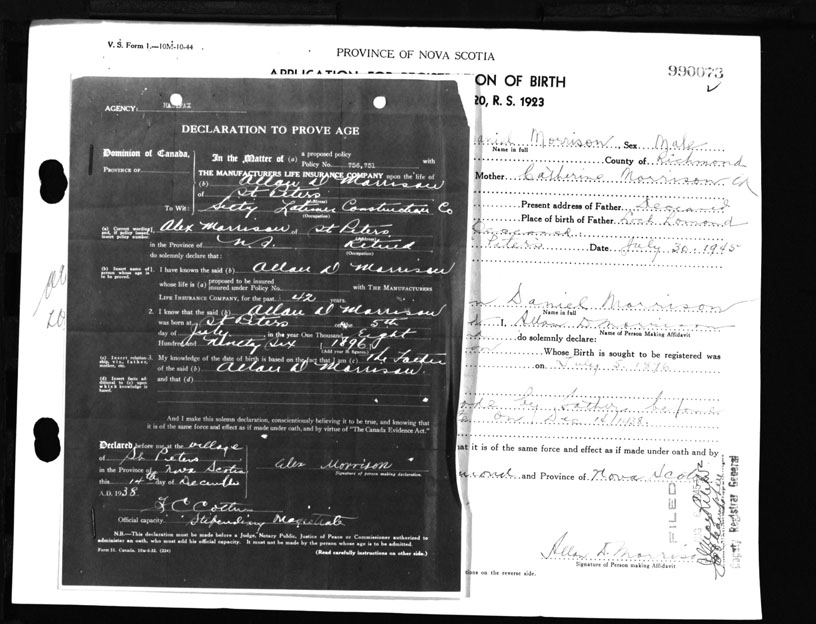 V. S. Form 1.—10M-10-44
PROVINCE OF NOVA SCOTIA
990073
ON OF BIRTH
20, R. S. 1923
AGENCY: HALIFAX
DECLARATION TO PROVE AGE
Dominion of Canada,
PROVINCE OF
To Wit:
In the Matter of (a) a proposed policy
Policy No. 756,751 with
THE MANUFACTURERS LIFE INSURANCE COMPANY upon the life of
(b) Allan D Morrison
of St Peters
Latimer Construction Co
(Occupation)
(a) Correct wording and, if policy issued, insert policy number.
Alex Morrison of St Peters
in the Province of N.S. Retired
(Occupation)
do solemnly declare that:
(b) Insert name of person whose age is to be proved.
1. I have known the said (b) Allan D Morrison
whose life is (a) proposed to be insured
insured under Policy No. with THE MANUFACTURERS
LIFE INSURANCE COMPANY, for the past 42 years.
2. I know that the said (b) Allan D Morrison
was born at St Peters on the 5th
day of July in the year One Thousand Eight
Hundred and Ninety Six 1896
(Add year in figures.)
(c) Insert relationship, viz, father, mother, etc.
3. My knowledge of the date of birth is based on the fact that I am (c) The Father
of the said (b) Allan D Morrison.
(d) Insert facts additional to (c) upon which knowledge is based.
and that (d)
And I make this solemn declaration, conscientiously believing it to be true, and knowing that
it is of the same force and effect as if made under oath, and by virtue of "The Canada Evidence Act."
Declared before me at the village
of St Peters
in the Province of Nova Scotia
this 14th day of December
A.D. 1938.
Alex Morrison
Signature of person making declaration.
Official capacity. Stipendiary Magistrate
N.B.—This declaration must be made before a Judge, Notary Public, Justice of Peace or Commissioner authorized to
administer an oath, who must add his official capacity. It must not be made by the person whose age is to be admitted.
(Read carefully instructions on other side.)
Daniel Morrison, Sex Male
Name in full
County of Richmond
Mother Catherine Morrison
Present address of Father Deceased
Place of birth of Father Loch Lomond
Deceased
Peters Date July 30, 1945
Daniel Morrison
Name in full
I, Allan D. Morrison
Name of Person Making Affidavit
do solemnly declare:
Whose Birth is sought to be registered was
on July 5, 1896
on Dec 14/1938.
at it is of the same force and effect as if made under oath and by
mond and Province of Nova Scotia
FILED
Deputy Registrar General
Allan D. Morrison
Signature of Person making Affidavit
tions on the reverse side.